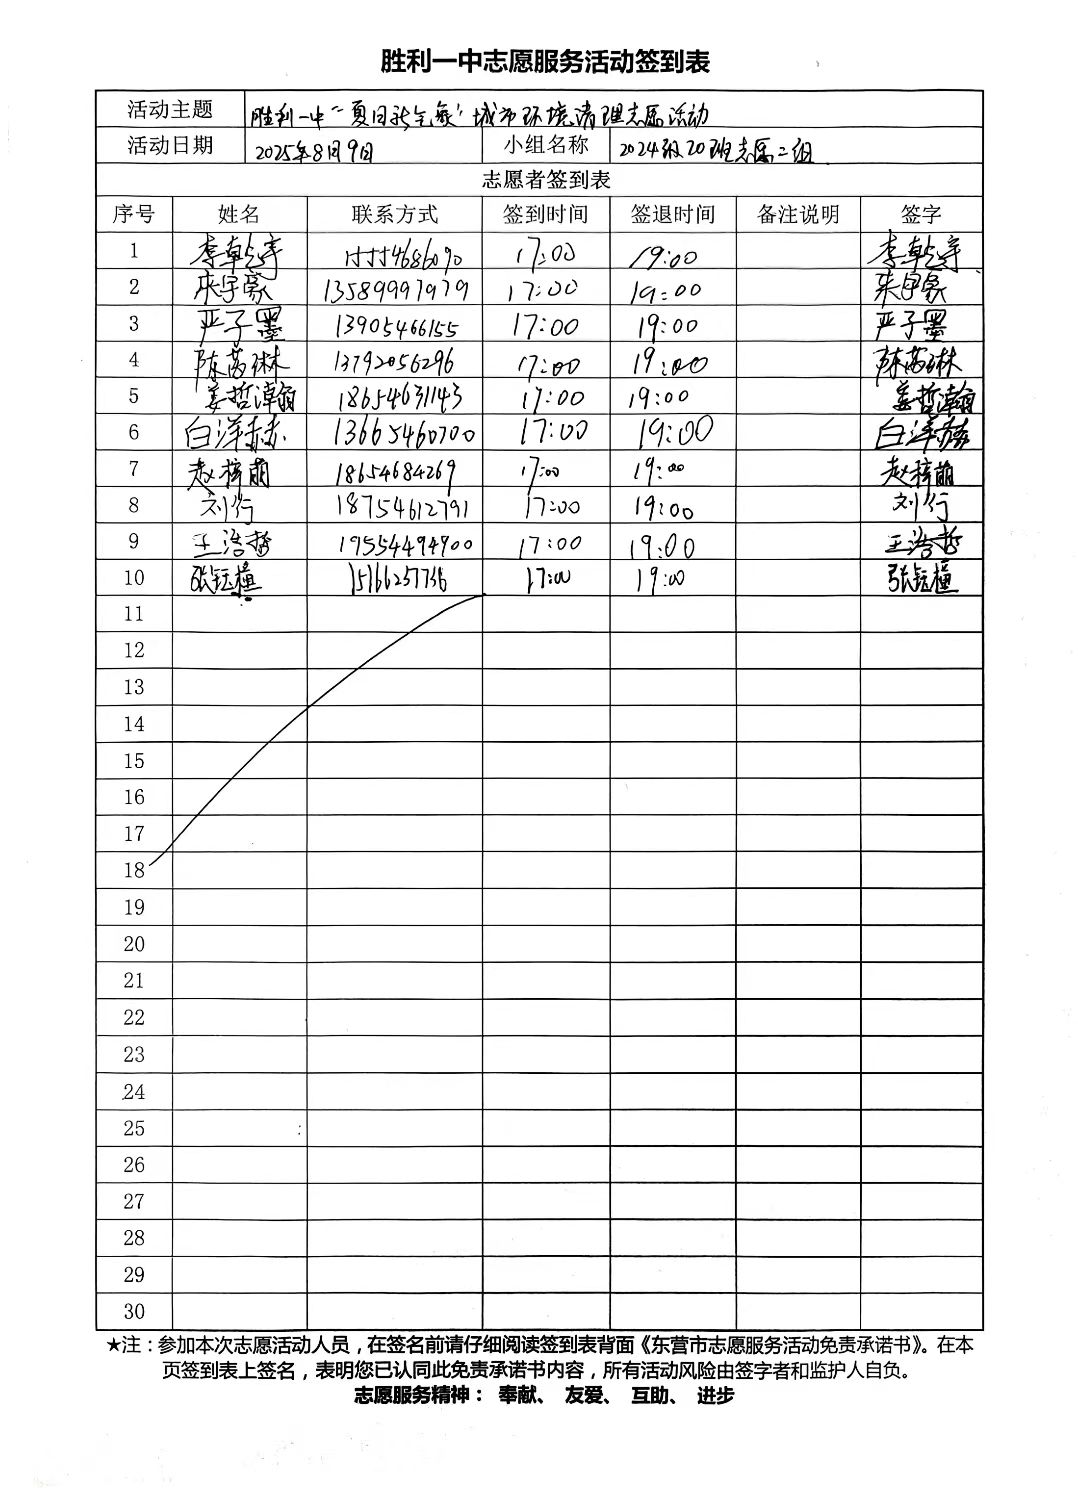 胜利一中志愿服务活动签到表
活动主题 胜利一中“夏日新气象”城市环境清理志愿活动
活动日期 2025年8月9日 小组名称 2024级20班志愿二组
志愿者签到表
序号 姓名 联系方式 签到时间 签退时间 备注说明 签字
1 李乾宇 15554686090 17:00 19:00 李乾宇
2 宋宇豪 13589997979 17:00 19:00 宋宇豪
3 严子墨 13905466155 17:00 19:00 严子墨
4 陈茜琳 13792056296 17:00 19:00 陈茜琳
5 姜哲瀚 18654631143 17:00 19:00 姜哲瀚
6 白洋赫 13665460700 17:00 19:00 白洋赫
7 赵梓萌 18654684269 17:00 19:00 赵梓萌
8 刘行 18754612791 17:00 19:00 刘行
9 王浩哲 19554494900 17:00 19:00 王浩哲
10 张钰橦 15166257736 17:00 19:00 张钰橦
11
12
13
14
15
16
17
18
19
20
21
22
23
24
25
26
27
28
29
30
★注：参加本次志愿活动人员，在签名前请仔细阅读签到表背面《东营市志愿服务活动免责承诺书》。在本
页签到表上签名，表明您已认同此免责承诺书内容，所有活动风险由签字者和监护人自负。
志愿服务精神： 奉献、 友爱、 互助、 进步